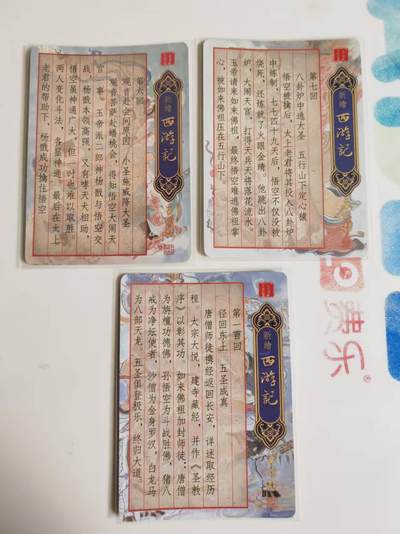 新繪
西游記
第六回
观音赴会问原因 小圣施威降大圣
观音菩萨赴蟠桃会，得知悟空大闹天
宫一事。玉帝派二郎神杨戬与悟空交
战。杨戬本领高强，又有哮天犬相助，
悟空虽神通广大，但一时也难以取胜。
两人变化斗法，各显神通。最终在太上
老君的帮助下，杨戬成功擒住悟空。
新繪
西游記
第七回
八卦炉中逃大圣 五行山下定心猿
悟空被擒后，太上老君将其投入八卦炉
中炼制。七七四十九天后，悟空不仅没被
烧死，还炼就了火眼金睛。他跳出八卦
炉，大闹天宫，打得天兵天将落花流水。
玉帝请来如来佛祖，最终悟空难逃佛祖掌
心，被如来佛祖压在五行山下。
新繪
西游記
第一百回
径回东土 五圣成真
唐僧师徒携经返回长安，详述取经历
程。太宗大悦，建寺藏经，并作《圣教
序》以彰其功。如来佛祖加封师徒：唐僧
为旃檀功德佛，孙悟空为斗战胜佛，猪八
戒为净坛使者，沙僧为金身罗汉，白龙马
为八部天龙。五圣俱登极乐，终归大道。